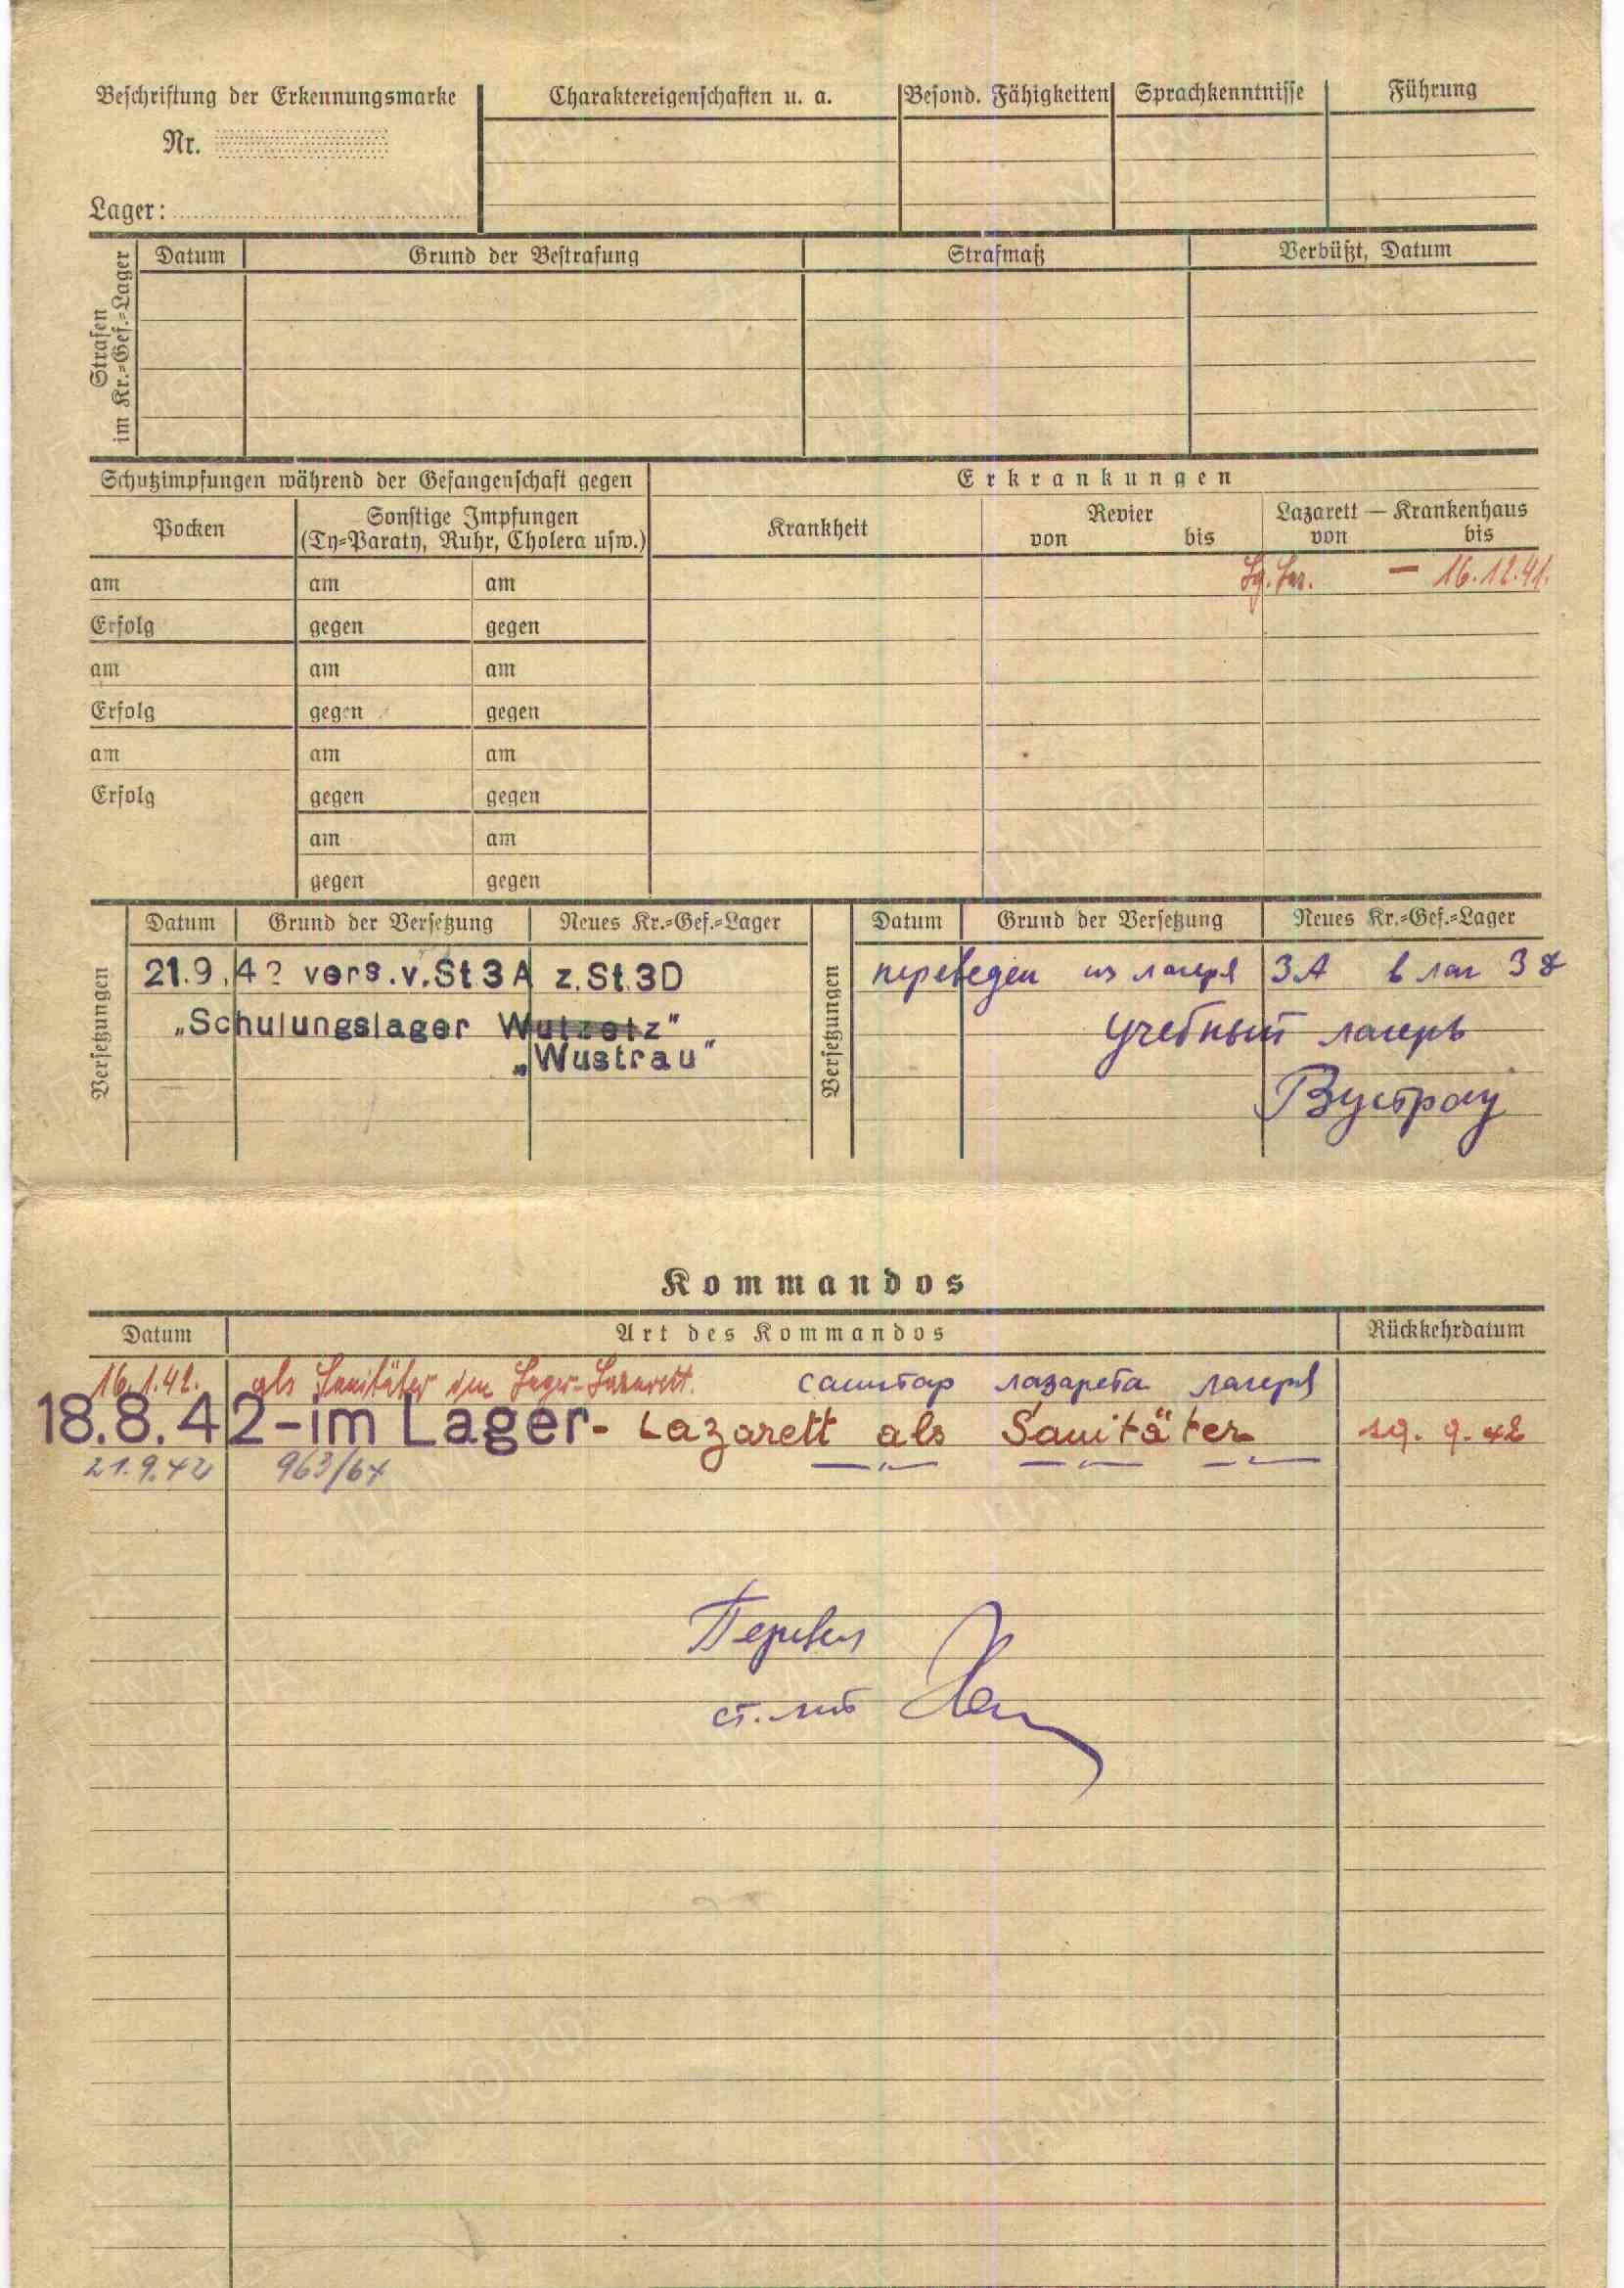 Beschriftung der Erkennungsmarke
Nr.
Lager:
Charaktereigenschaften u. a.
Besond. Fähigkeiten
Sprachkenntnisse
Führung
Strafen
im Kr.=Gef.=Lager
Datum
Grund der Bestrafung
Strafmaß
Verbüßt, Datum
Schutzimpfungen während der Gefangenschaft gegen
Pocken
Sonstige Impfungen
(Ty=Paraty, Ruhr, Cholera usw.)
am am am
Erfolg gegen gegen
am am am
Erfolg gegen gegen
am am am
Erfolg gegen gegen
am am
gegen gegen
Erkrankungen
Krankheit
Revier
von bis
Lazarett — Krankenhaus
von bis
— 16.12.41.
Versetzungen
Datum Grund der Versetzung Neues Kr.=Gef.=Lager
21.9.42 vers.v.St 3A z.St.3D
„Schulungslager Wutzetz"
„Wustrau"
Versetzungen
Datum Grund der Versetzung Neues Kr.=Gef.=Lager
переведен из лагеря 3А в лаг 3Д
учебный лагерь
Вустрау
Kommandos
Datum Art des Kommandos Rückkehrdatum
16.1.42. als Sanitäter im Lager-Lazarett. санитар лазарета лагеря
18.8.42-im Lager- Lazarett als Sanitäter 19.9.42
21.9.42 963/64 —〃— —〃— —〃—
Перевел
ст. л-т